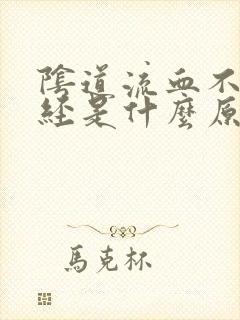 陰道流血不
經是什麼原
馬克杯